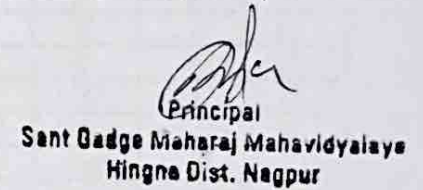 Principal
Sant Gadge Maharaj Mahavidyalaya
Hingna Dist. Nagpur